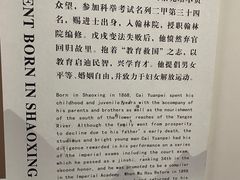 众望，参加科举考试名列二甲第三十四
名，赐进士出身，入翰林院，授职翰林
院编修。戊戌变法失败后，他愤然弃官
回归故里，抱着“教育救国”之志，以
教育启迪民智，兴学育才。他提倡男女
平等、婚姻自由，并致力于妇女解放运动。
Born in Shaoxing in 1868, Cai Yuanpei spent his
childhood and juvenile years with the accompany of
his parents and brothers as well as the nourishment
of the south of the lower reaches of the Yangze
River. Although the family went from prosperity
to decline due to his father's early death, the
studious and bright young man Cai Yuanpei had his
vengeance rewarded in his performance on a series
of the imperial exams including the court exam,
which he passed as a jinshi, ranking 34th in the
second course, and was promoted to be a compiler
in the Imperial Academy. When Wu Xu Reform failed in 1898
ENT BORN IN SHAOXING